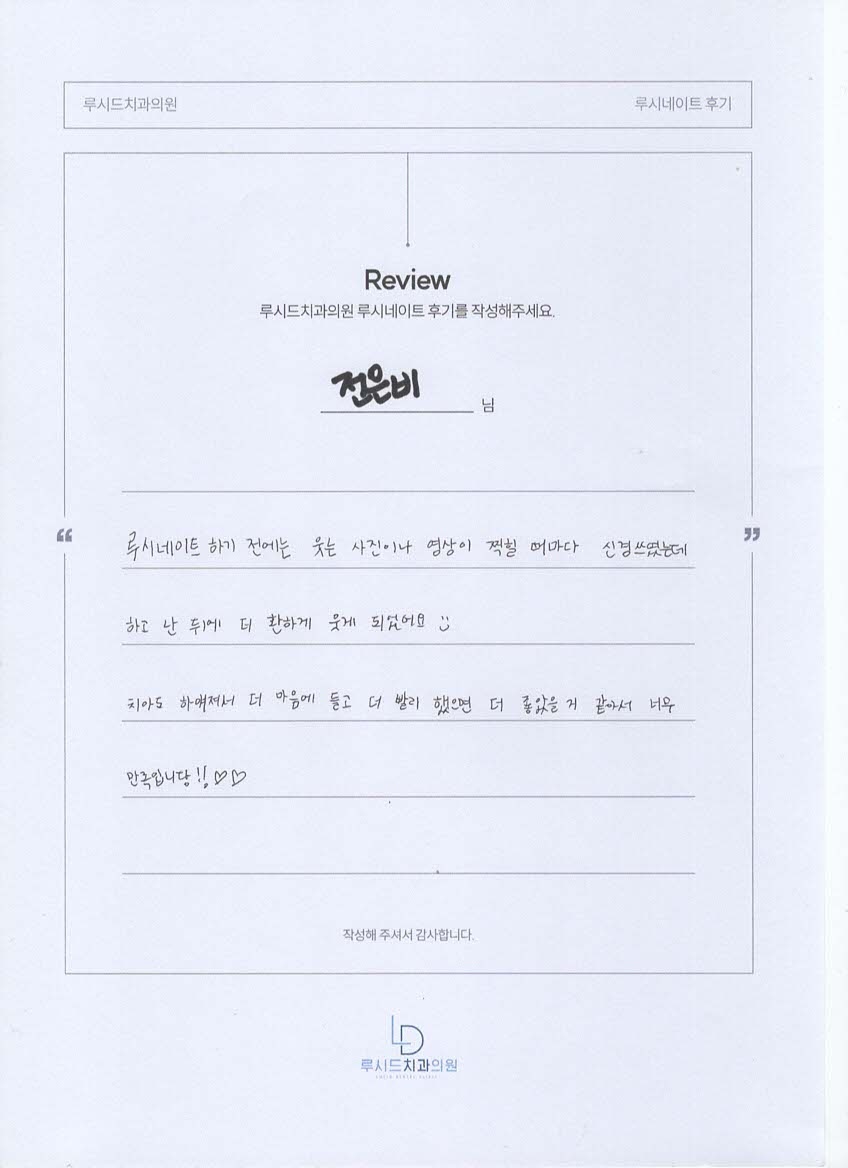 루시드치과의원
루시네이트 후기
Review
루시드치과의원 루시네이트 후기를 작성해주세요.
전은비 님
“ ”
루시네이트 하기 전에는 웃는 사진이나 영상이 찍힐 때마다 신경쓰였는데
하고 난 뒤에 더 환하게 웃게 되었어요 :)
치아도 하얘져서 더 마음에 들고 더 빨리 했으면 더 좋았을 거 같아서 너무
만족입니당!! ♡♡
작성해 주셔서 감사합니다.
LD
루시드치과의원